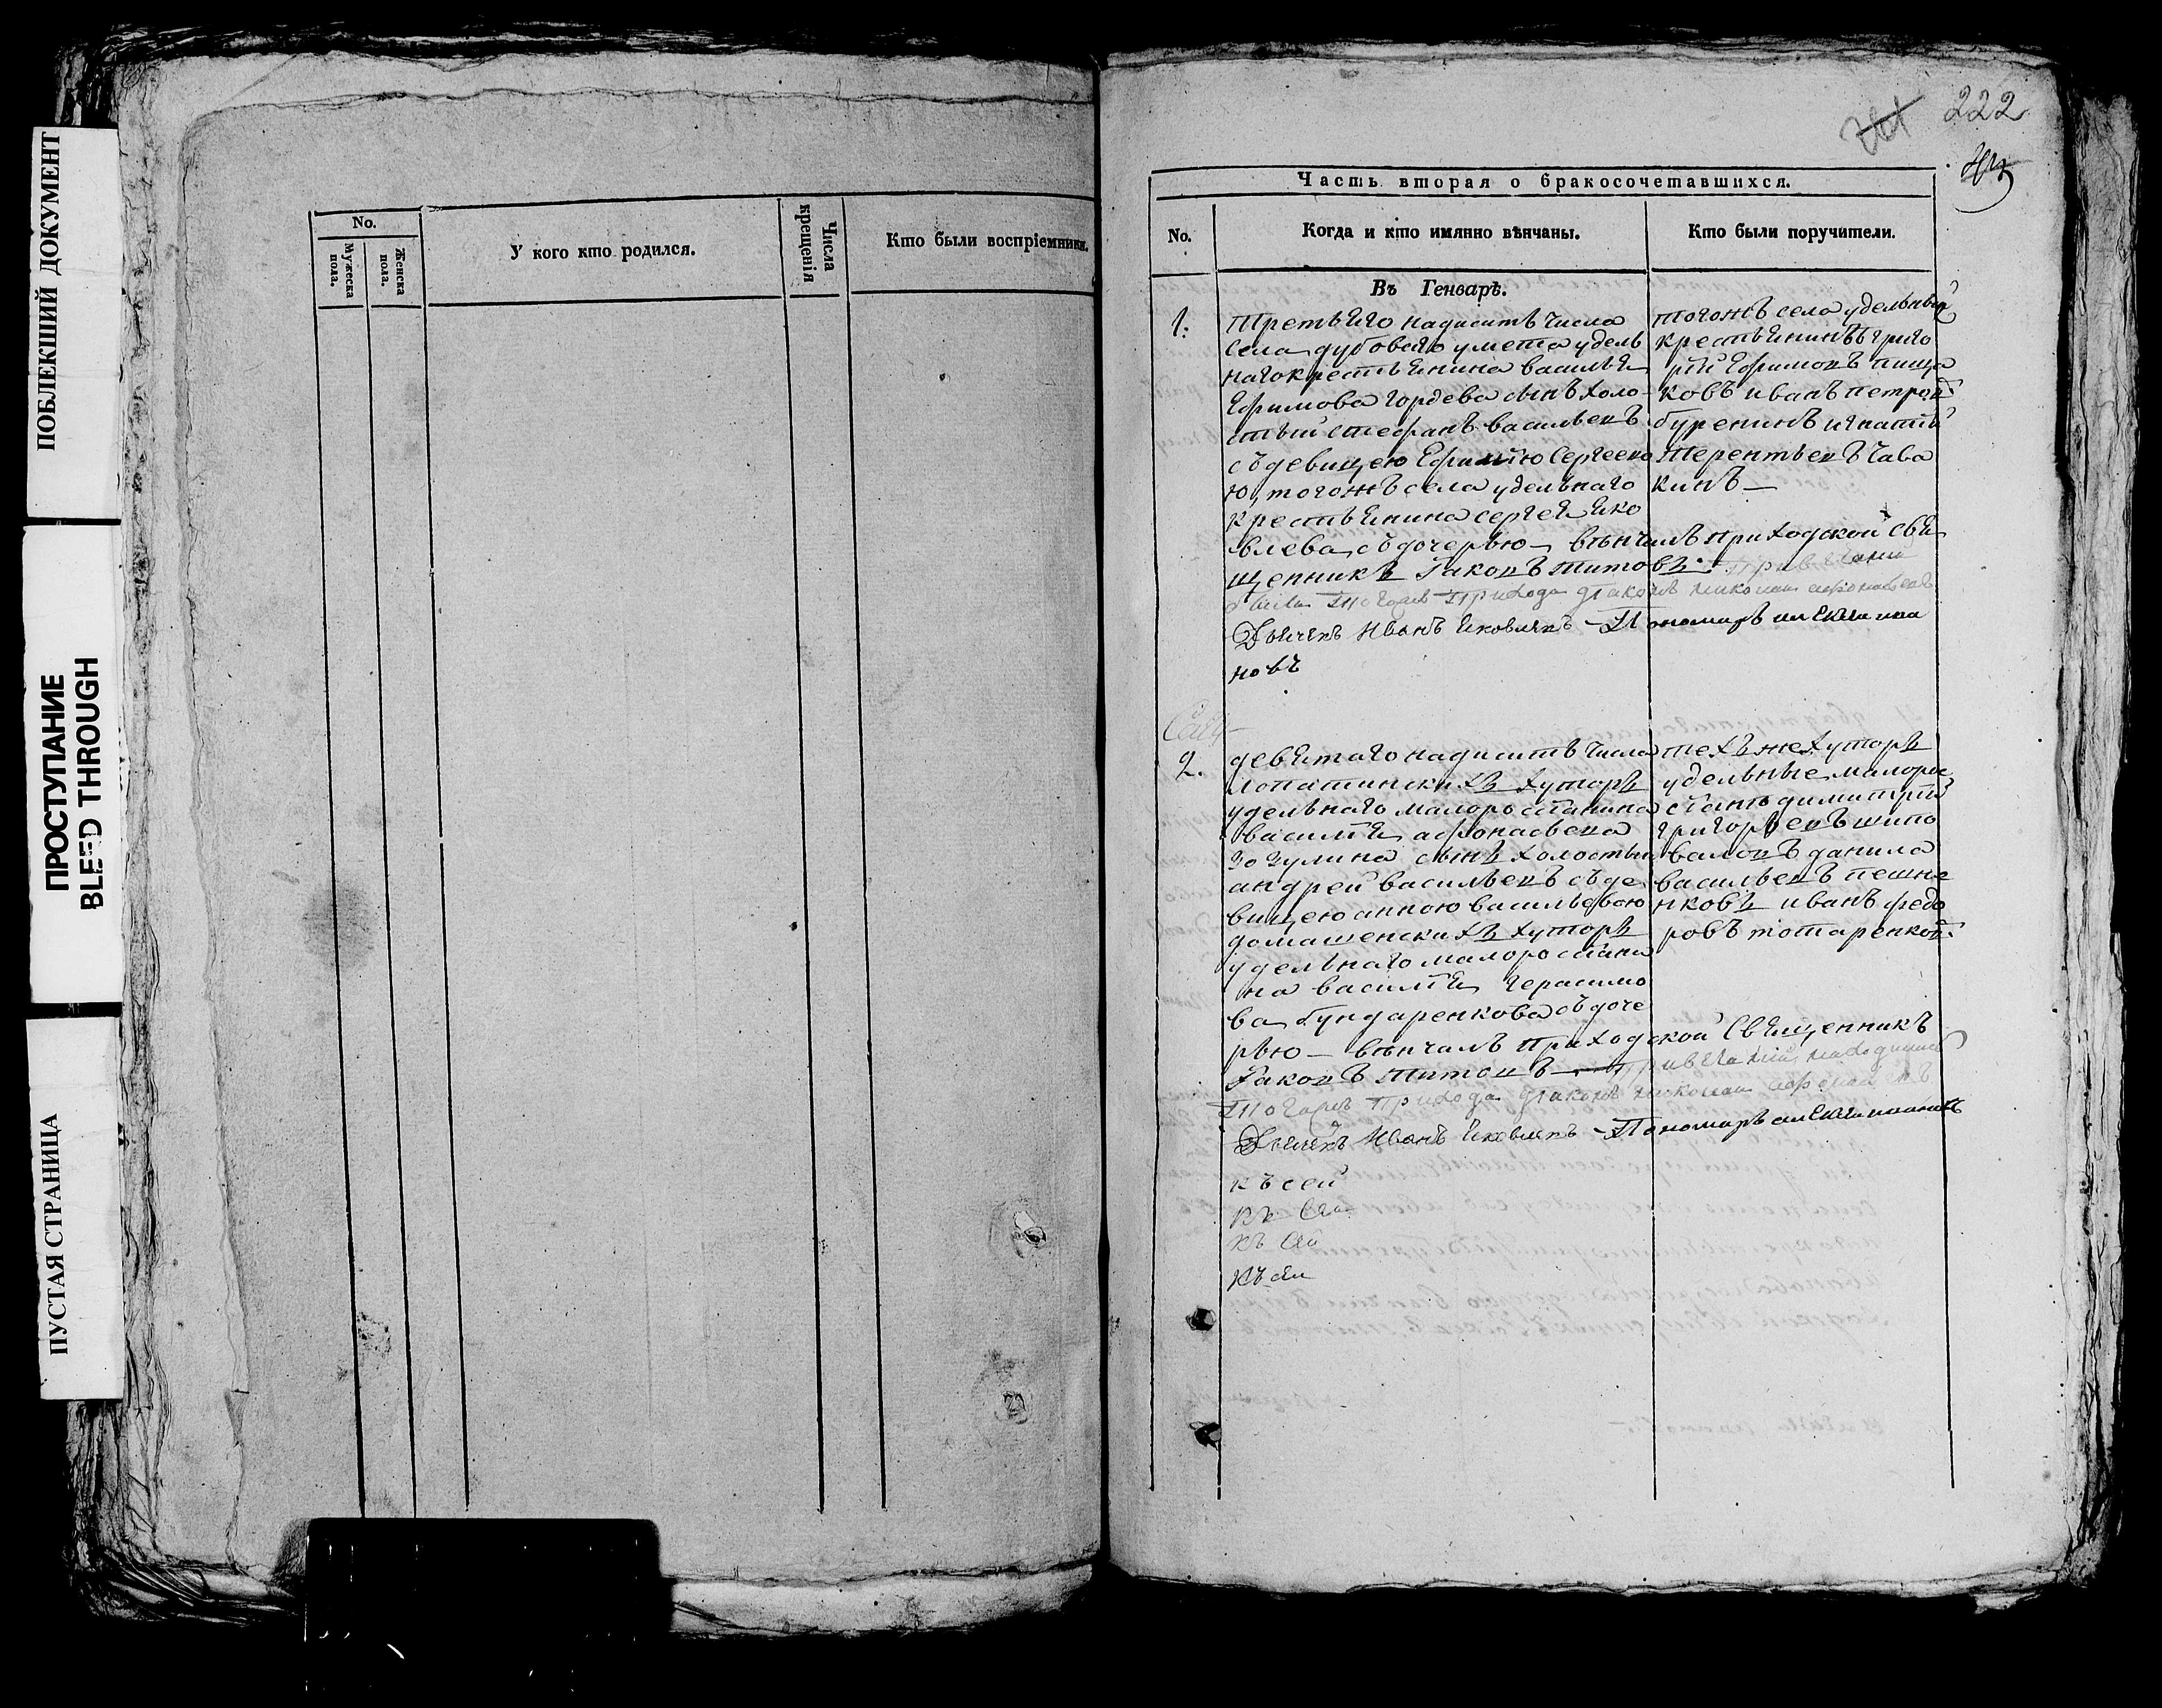 ПОБЛЕКШИЙ ДОКУМЕНТ
ПРОСТУПАНИЕ
BLEED THROUGH
ПУСТАЯ СТРАНИЦА
No.
Мужеска пола.
Женска пола.
У кого кто родился.
Числа крещенія
Кто были воспріемники.
222
Часть вторая о бракосочетавшихся.
No.
Когда и кто имянно вѣнчаны.
Кто были поручители.
Въ Генварѣ.
1.
третьяго надесять числа
села дубоваго умета удель
наго крестьянина василья
Ефимова гордева сынъ холо
стый стефанъ васильевъ
съ девицею Ефиміею Сергеево
ю, тогожъ села удельнаго
крестьянина сергея яко
влева съ дочерью — венчалъ приходской свя
щенникъ Іаковъ титовъ
дьяконъ николай
Дьячекъ Иванъ Яковлевъ — Пономарь
новъ
тогожъ села удельный
крестьянинъ григо
рій Ефимовъ пища
ковъ иванъ петровъ
буренинъ игнатій
терентьевъ чава
кинъ —
2.
девятаго надесять числа
лопатинскихъ хуторъ
удельнаго малоросіянина
василія афонасьева
зозулина сынъ холостый
андрей васильевъ съ де
вицею анною васильевою
домашенскихъ хуторъ
удельнаго малоросіяни
на василія герасимо
ва бундаренкова съ доче
рью — венчалъ приходской Священникъ
Іаковъ титовъ — при венчаніи находился
прихода дьяконъ николай
Дьячекъ Иванъ Яковлевъ — Пономарь
къ сей
къ сей
къ сей
къ сей
техъ же хуторъ
удельные малорос
сіяне димитрій
григорьевъ шипо
валовъ данила
васильевъ пешне
нковъ иванъ федо
ровъ тотаренковъ